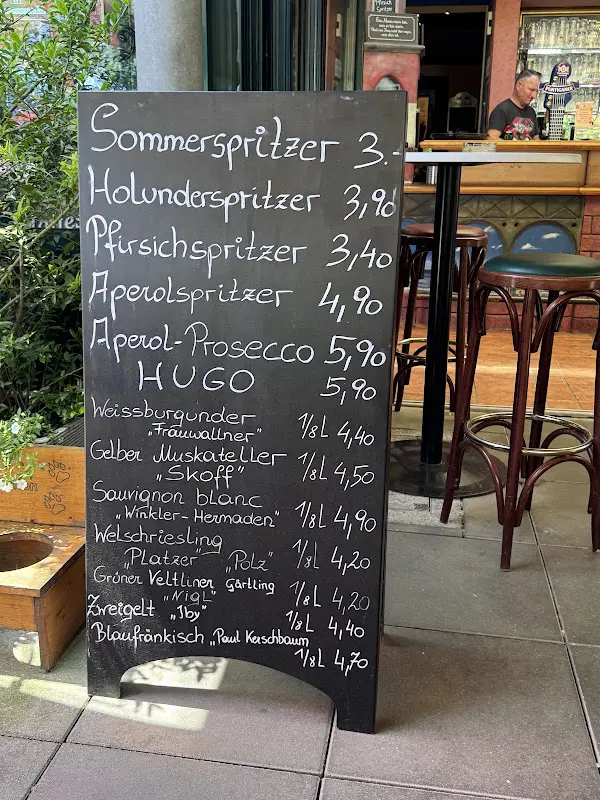 Sommerspritzer 3.-
Holunderspritzer 3,90
Pfirsichspritzer 3,40
Aperolspritzer 4,90
Aperol-Prosecco 5,90
HUGO 5,90
Weissburgunder
„Frauwallner" 1/8L 4,40
Gelber Muskateller
„Skoff" 1/8L 4,50
Sauvignon blanc
„Winkler-Hermaden" 1/8L 4,90
Welschriesling
„Platzer" „Polz" 1/8L 4,20
Grüner Veltliner Gärtling
„Nigl" 1/8L 4,20
Zweigelt „Iby" 1/8L 4,40
Blaufränkisch „Paul Kerschbaum
1/8L 4,70
PUNTIGAMER